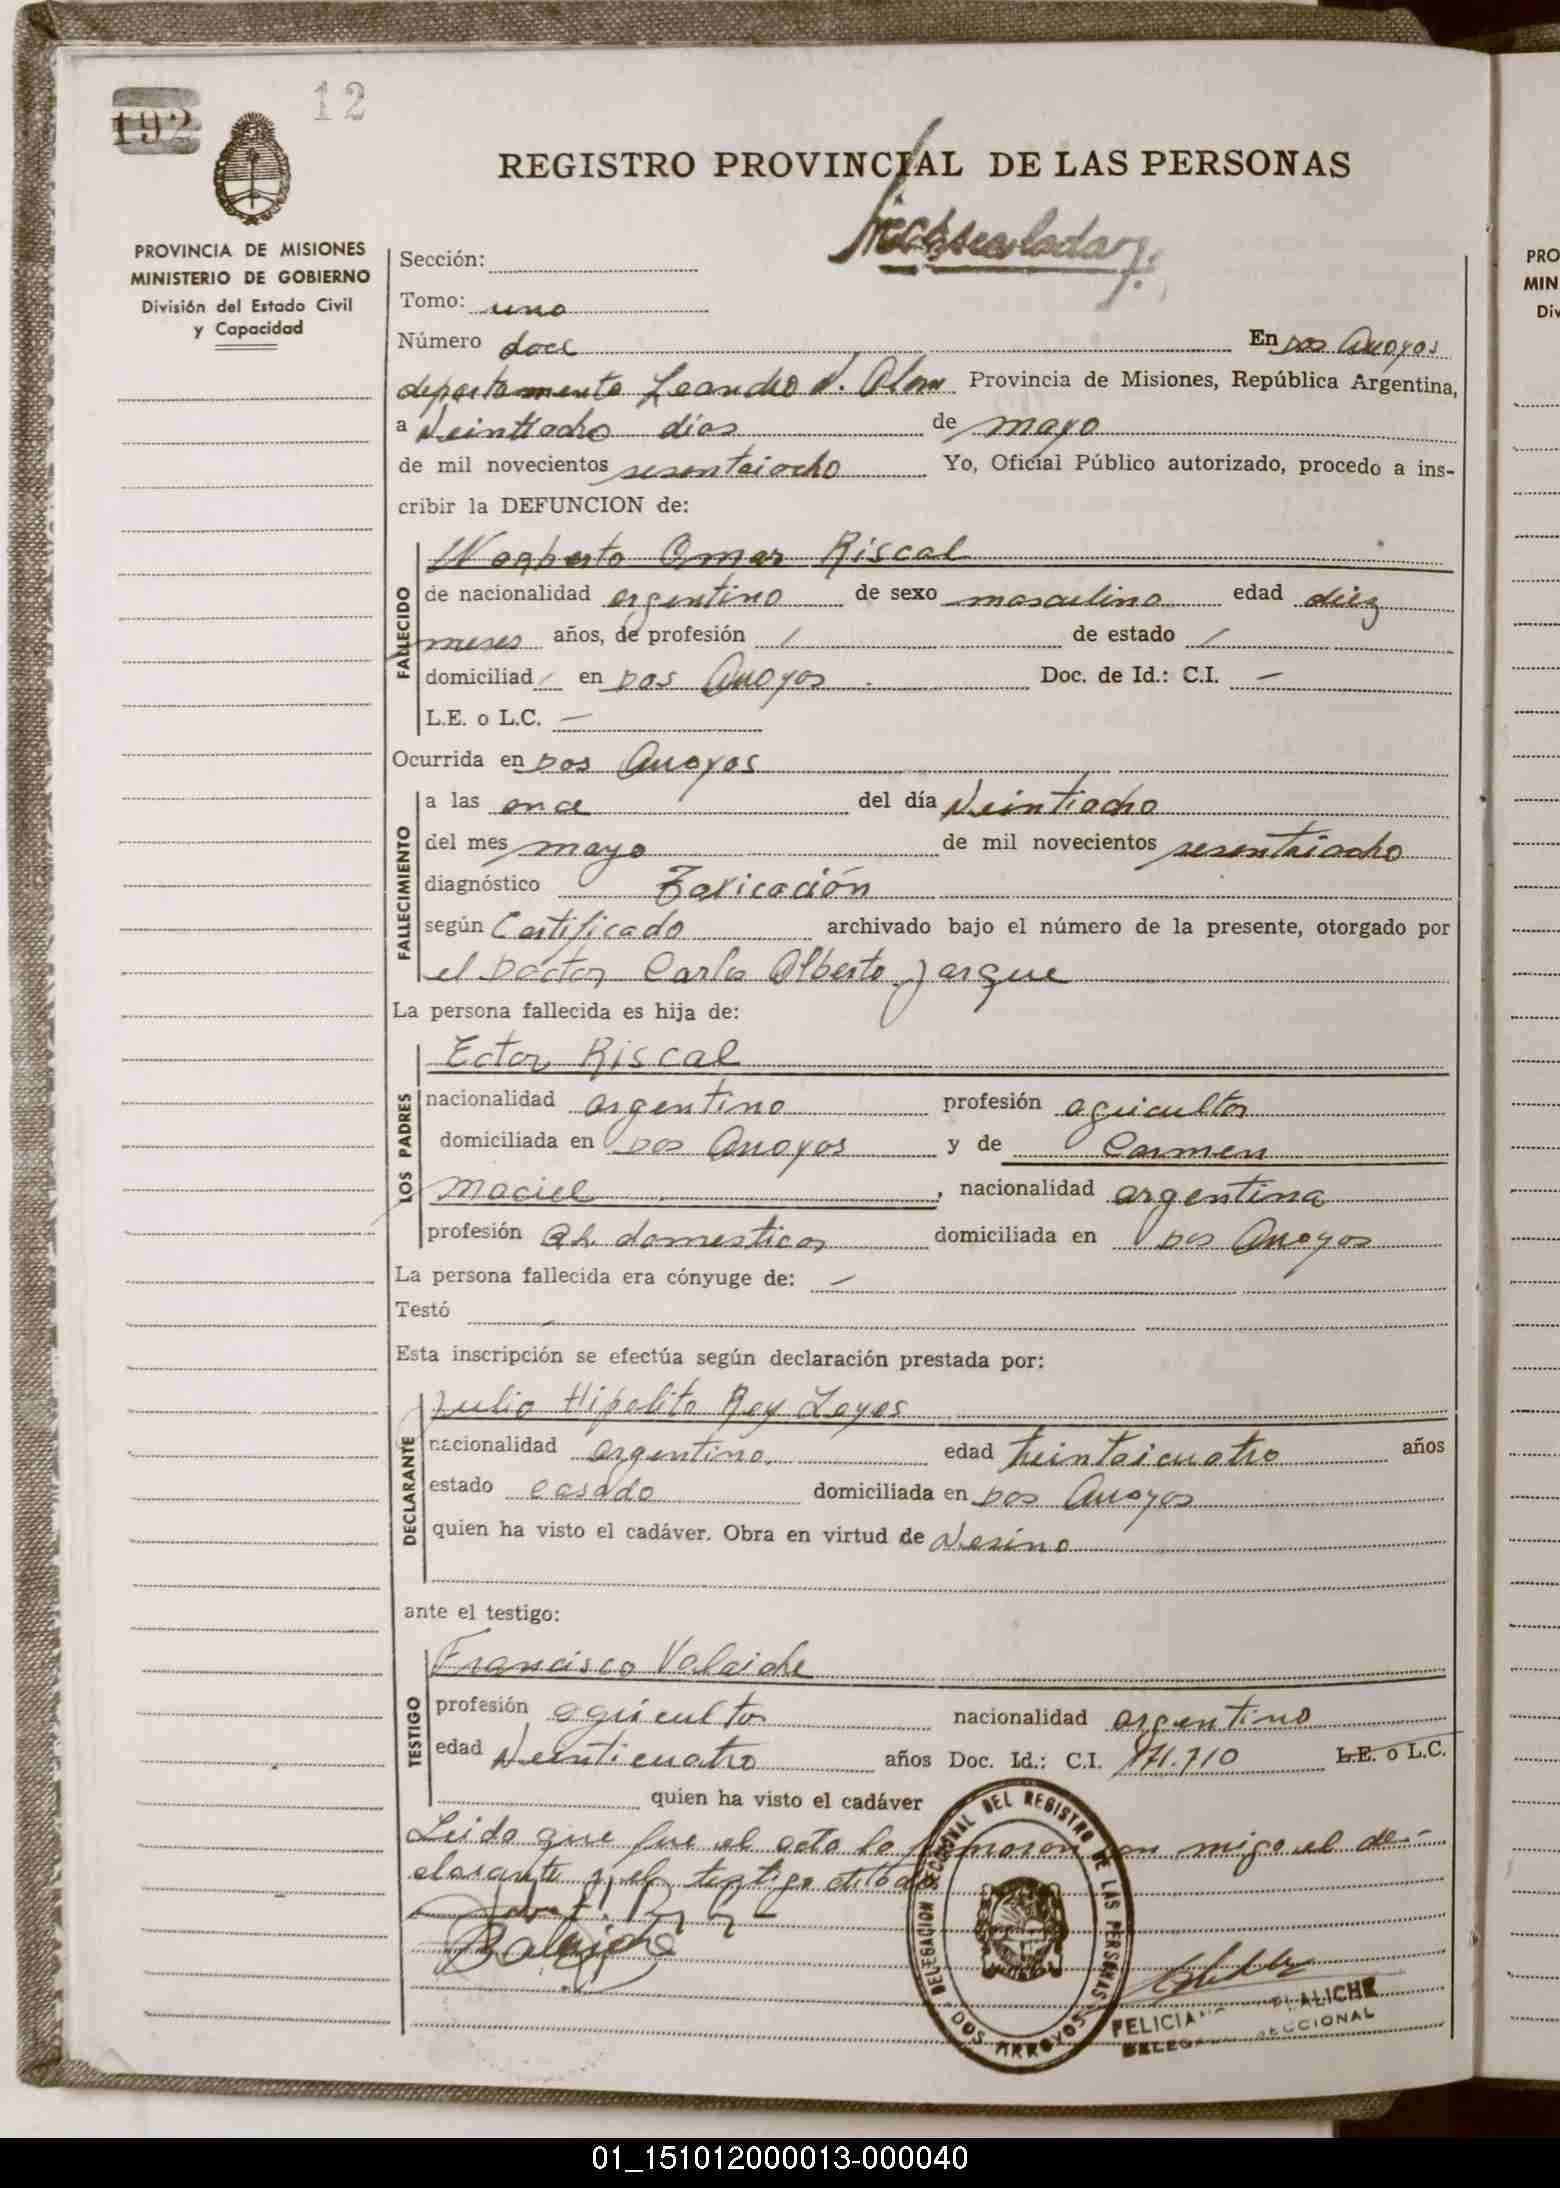 192
12
REGISTRO PROVINCIAL DE LAS PERSONAS
PROVINCIA DE MISIONES
MINISTERIO DE GOBIERNO
División del Estado Civil
y Capacidad
Sección:
Tomo: uno
Número doce En Dos Arroyos
departamento Leandro N. Alem Provincia de Misiones, República Argentina,
a Veintiocho días de mayo
de mil novecientos sesentaiocho Yo, Oficial Público autorizado, procedo a ins-
cribir la DEFUNCION de:
Norberto Omar Riscal
FALLECIDO
de nacionalidad argentino de sexo masculino edad diez
meses años, de profesión / de estado /
domiciliad / en Dos Arroyos . Doc. de Id.: C.I. —
L.E. o L.C. —
Ocurrida en Dos Arroyos
FALLECIMIENTO
a las once del día Veintiocho
del mes mayo de mil novecientos sesentaiocho
diagnóstico Toxicación
según Certificado archivado bajo el número de la presente, otorgado por
el Doctor Carlos Alberto Jarque
La persona fallecida es hija de:
Ector Riscal
LOS PADRES
nacionalidad argentino profesión agricultor
domiciliada en Dos Arroyos y de Carmen
Maciel , nacionalidad argentina
profesión qh. domesticos domiciliada en Dos Arroyos
La persona fallecida era cónyuge de: —
Testó
Esta inscripción se efectúa según declaración prestada por:
Julio Hipolito Rey Leyes
DECLARANTE
nacionalidad argentino. edad treintaicuatro años
estado casado domiciliada en Dos Arroyos
quien ha visto el cadáver. Obra en virtud de Vesino
ante el testigo:
Francisco Valaiche
TESTIGO
profesión agricultor nacionalidad argentino
edad Veinticuatro años Doc. Id.: C.I. 171.710 L.E. o L.C.
quien ha visto el cadáver
Leida que fue el acta la firmaron con migo el de-
clarante y el testigo citado
DELEGACION SECCIONAL DEL REGISTRO DE LAS PERSONAS
DOS ARROYOS
SECCIONAL
PRO
MIN
Div
01_151012000013-000040